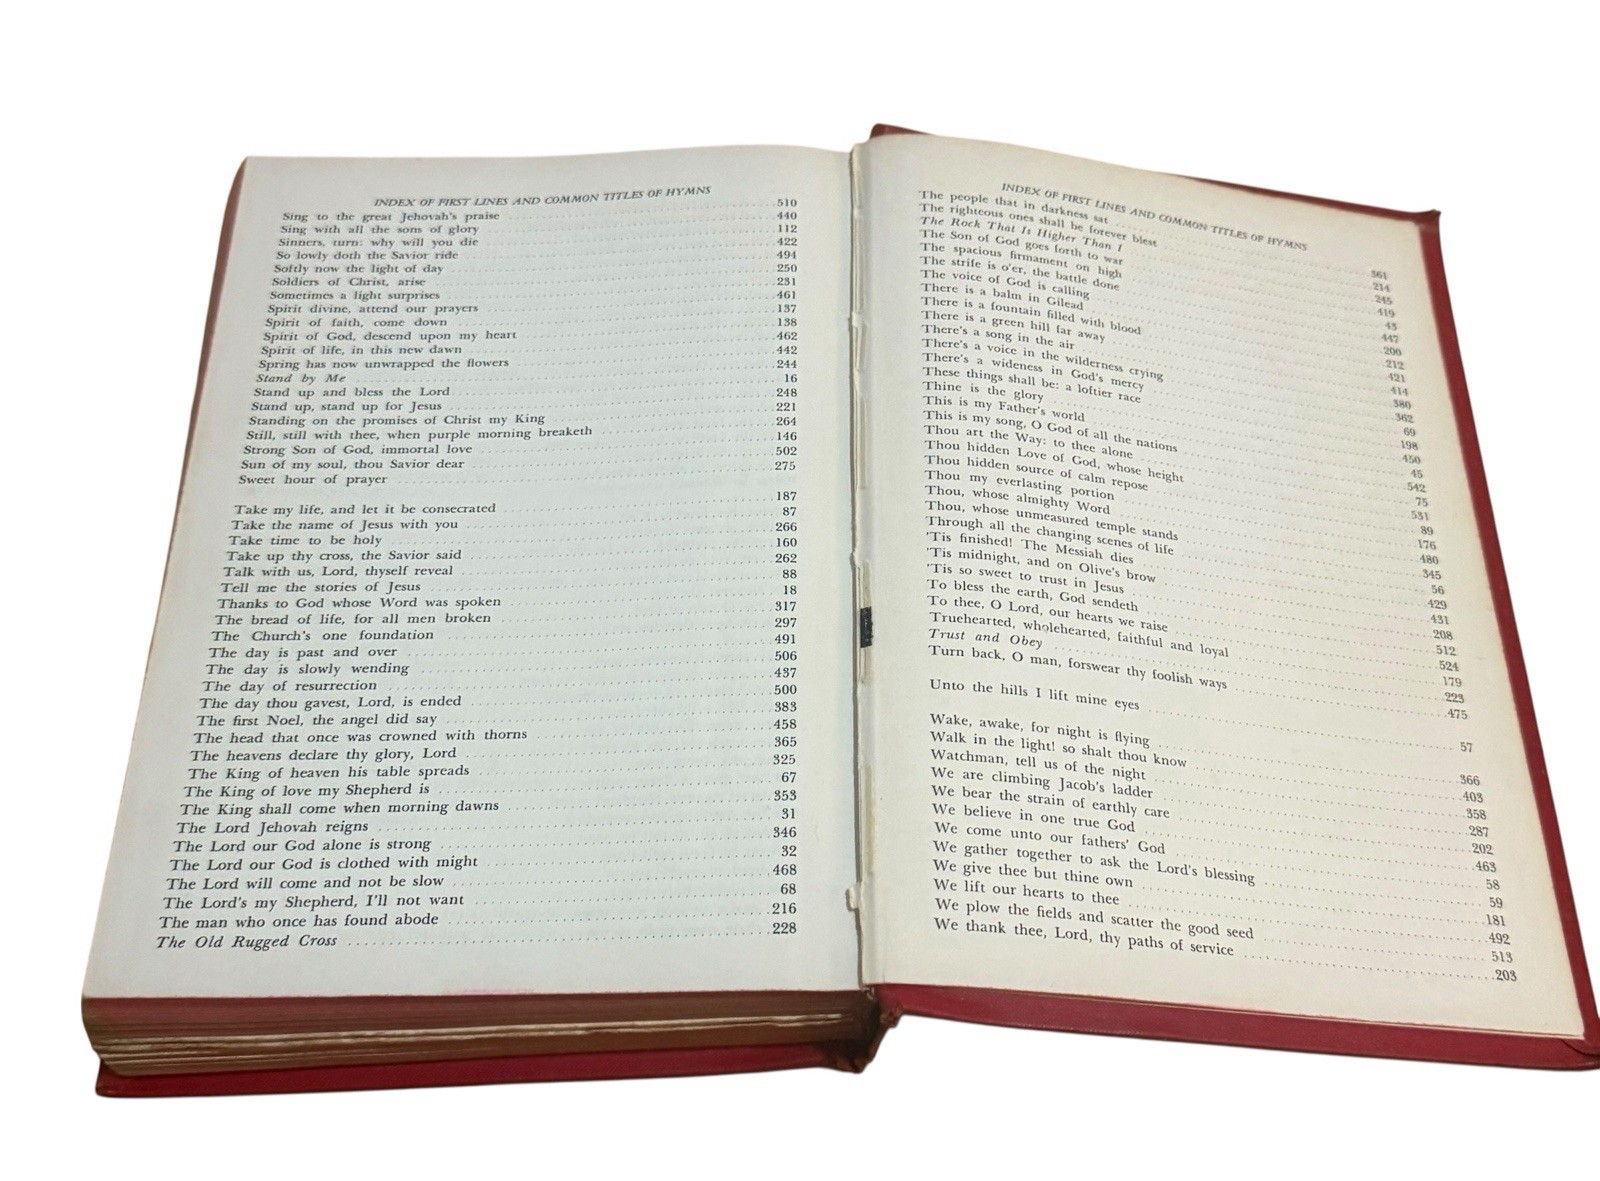 INDEX OF FIRST LINES AND COMMON TITLES OF HYMNS
Sing to the great Jehovah's praise 510
Sing with all the sons of glory 440
Sinners, turn: why will you die 112
So lowly doth the Savior ride 422
Softly now the light of day 494
Soldiers of Christ, arise 250
Sometimes a light surprises 231
Spirit divine, attend our prayers 461
Spirit of faith, come down 137
Spirit of God, descend upon my heart 138
Spirit of life, in this new dawn 462
Spring has now unwrapped the flowers 442
Stand by Me 244
Stand up and bless the Lord 16
Stand up, stand up for Jesus 248
Standing on the promises of Christ my King 221
Still, still with thee, when purple morning breaketh 264
Strong Son of God, immortal love 146
Sun of my soul, thou Savior dear 502
Sweet hour of prayer 275
Take my life, and let it be consecrated 187
Take the name of Jesus with you 87
Take time to be holy 266
Take up thy cross, the Savior said 160
Talk with us, Lord, thyself reveal 262
Tell me the stories of Jesus 88
Thanks to God whose Word was spoken 18
The bread of life, for all men broken 317
The Church's one foundation 297
The day is past and over 491
The day is slowly wending 506
The day of resurrection 437
The day thou gavest, Lord, is ended 500
The first Noel, the angel did say 383
The head that once was crowned with thorns 458
The heavens declare thy glory, Lord 365
The King of heaven his table spreads 325
The King of love my Shepherd is 67
The King shall come when morning dawns 353
The Lord Jehovah reigns 31
The Lord our God alone is strong 346
The Lord our God is clothed with might 32
The Lord will come and not be slow 468
The Lord's my Shepherd, I'll not want 68
The man who once has found abode 216
The Old Rugged Cross 228
INDEX OF FIRST LINES AND COMMON TITLES OF HYMNS
The people that in darkness sat 361
The righteous ones shall be forever blest 214
The Rock That Is Higher Than I 245
The Son of God goes forth to war 419
The spacious firmament on high 43
The strife is o'er, the battle done 447
The voice of God is calling 200
There is a balm in Gilead 212
There is a fountain filled with blood 421
There is a green hill far away 414
There's a song in the air 380
There's a voice in the wilderness crying 362
There's a wideness in God's mercy 69
These things shall be: a loftier race 198
Thine is the glory 450
This is my Father's world 45
This is my song, O God of all the nations 542
Thou art the Way: to thee alone 75
Thou hidden Love of God, whose height 531
Thou hidden source of calm repose 89
Thou my everlasting portion 176
Thou, whose almighty Word 480
Thou, whose unmeasured temple stands 345
Through all the changing scenes of life 56
'Tis finished! The Messiah dies 429
'Tis midnight, and on Olive's brow 431
'Tis so sweet to trust in Jesus 208
To bless the earth, God sendeth 512
To thee, O Lord, our hearts we raise 524
Truehearted, wholehearted, faithful and loyal 179
Trust and Obey 223
Turn back, O man, forswear thy foolish ways 475
Unto the hills I lift mine eyes 57
Wake, awake, for night is flying 366
Walk in the light! so shalt thou know 403
Watchman, tell us of the night 358
We are climbing Jacob's ladder 287
We bear the strain of earthly care 202
We believe in one true God 463
We come unto our fathers' God 58
We gather together to ask the Lord's blessing 59
We give thee but thine own 181
We lift our hearts to thee 492
We plow the fields and scatter the good seed 513
We thank thee, Lord, thy paths of service 203